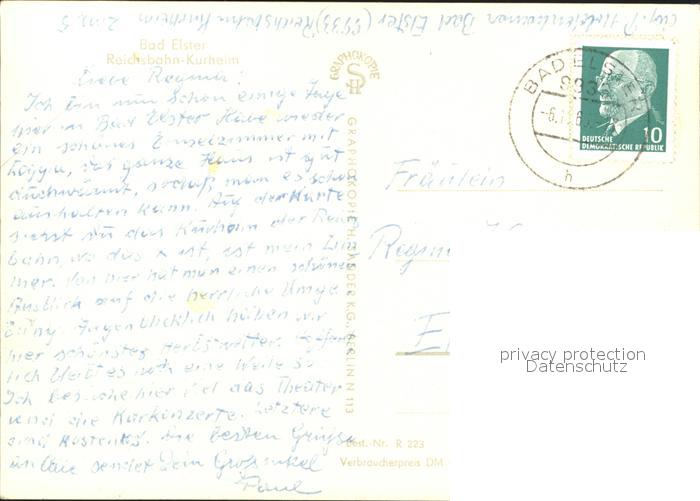 Bad Elster (9933) Reichsbahn Kurheim
Bad Elster
Reichsbahn-Kurheim
Liebe Regina!
Ich bin nun schon einige Tage
hier in Bad Elster. Habe wieder
ein schönes Einzelzimmer mit
Loggia, das ganze Haus ist gut
durchwärmt, sodaß man es schon
aushalten kann. Auf der Karte
siehst du das Kurheim der Reichs
bahn, wo das x ist, ist mein Zim
mer. Von hier hat man einen schönen
Ausblick auf die herrliche Umge
bung. Augenblicklich haben wir
hier schönstes Herbstwetter. Hoffent
lich bleibt es noch eine Weile so
Ich besuche hier viel das Theater
und die Kurkonzerte. Letztere
sind kostenlos. Die besten Grüße
an Euch sendet Dein Großonkel
Paul
GRAPHOKOPIE
GRAPHOKOPIE H. SANDER K.G., BERLIN N 113
Best.-Nr. R 223
Verbraucherpreis DM
BAD ELSTER
993
h
DEUTSCHE
DEMOKRATISCHE REPUBLIK
10
Fräulein
privacy protection
Datenschutz